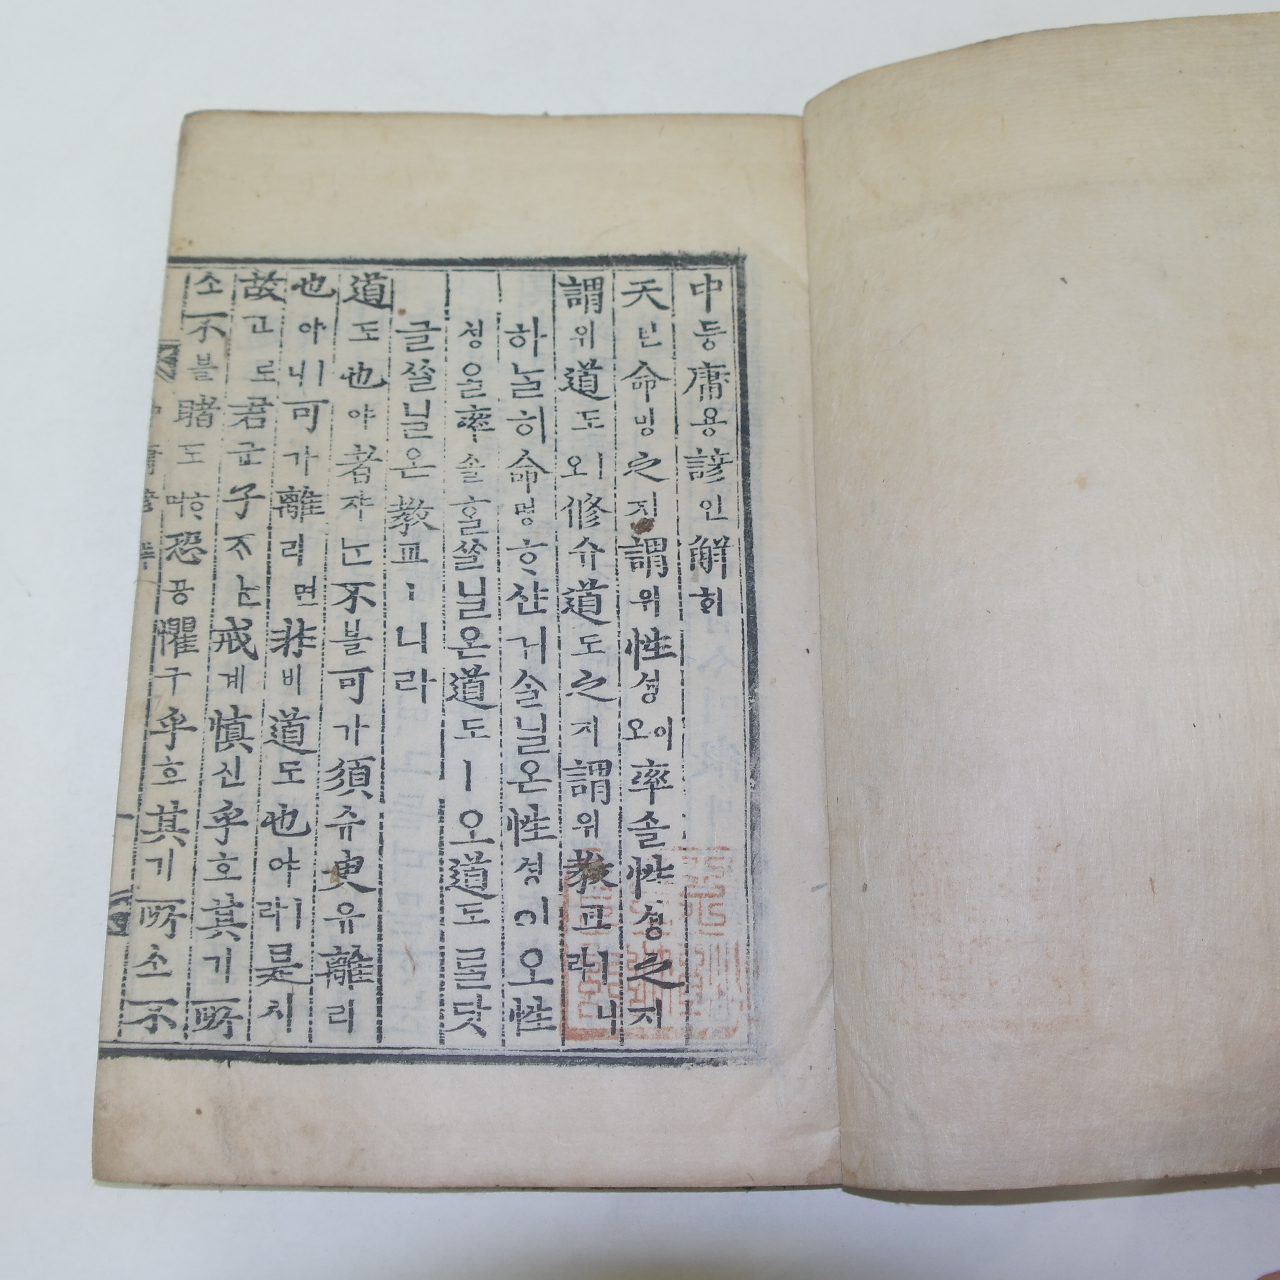 中듕庸용諺언解ᄒᆡ
天텬命명之지謂위性셩이오率솔性셩之지
謂위道도ㅣ오修슈道도之지謂위敎교ㅣ니라
하ᄂᆞᆯ히命명ᄒᆞ샨거ᄉᆞᆯ닐온性셩이오性
셩을率솔ᄒᆞᆯᄉᆞᆯ닐온道도ㅣ오道도ᄅᆞᆯ닷
글ᄉᆞᆯ닐온敎교ㅣ니라
道도也야者쟈ᄂᆞᆫ不블可가須슈臾유離리
也야ㅣ니可가離리면非비道도也야ㅣ라是시
故고로君군子ᄌᆞᄂᆞᆫ戒계愼신乎호其기所
소不블睹도ᄒᆞ며恐공懼구乎호其기所소不